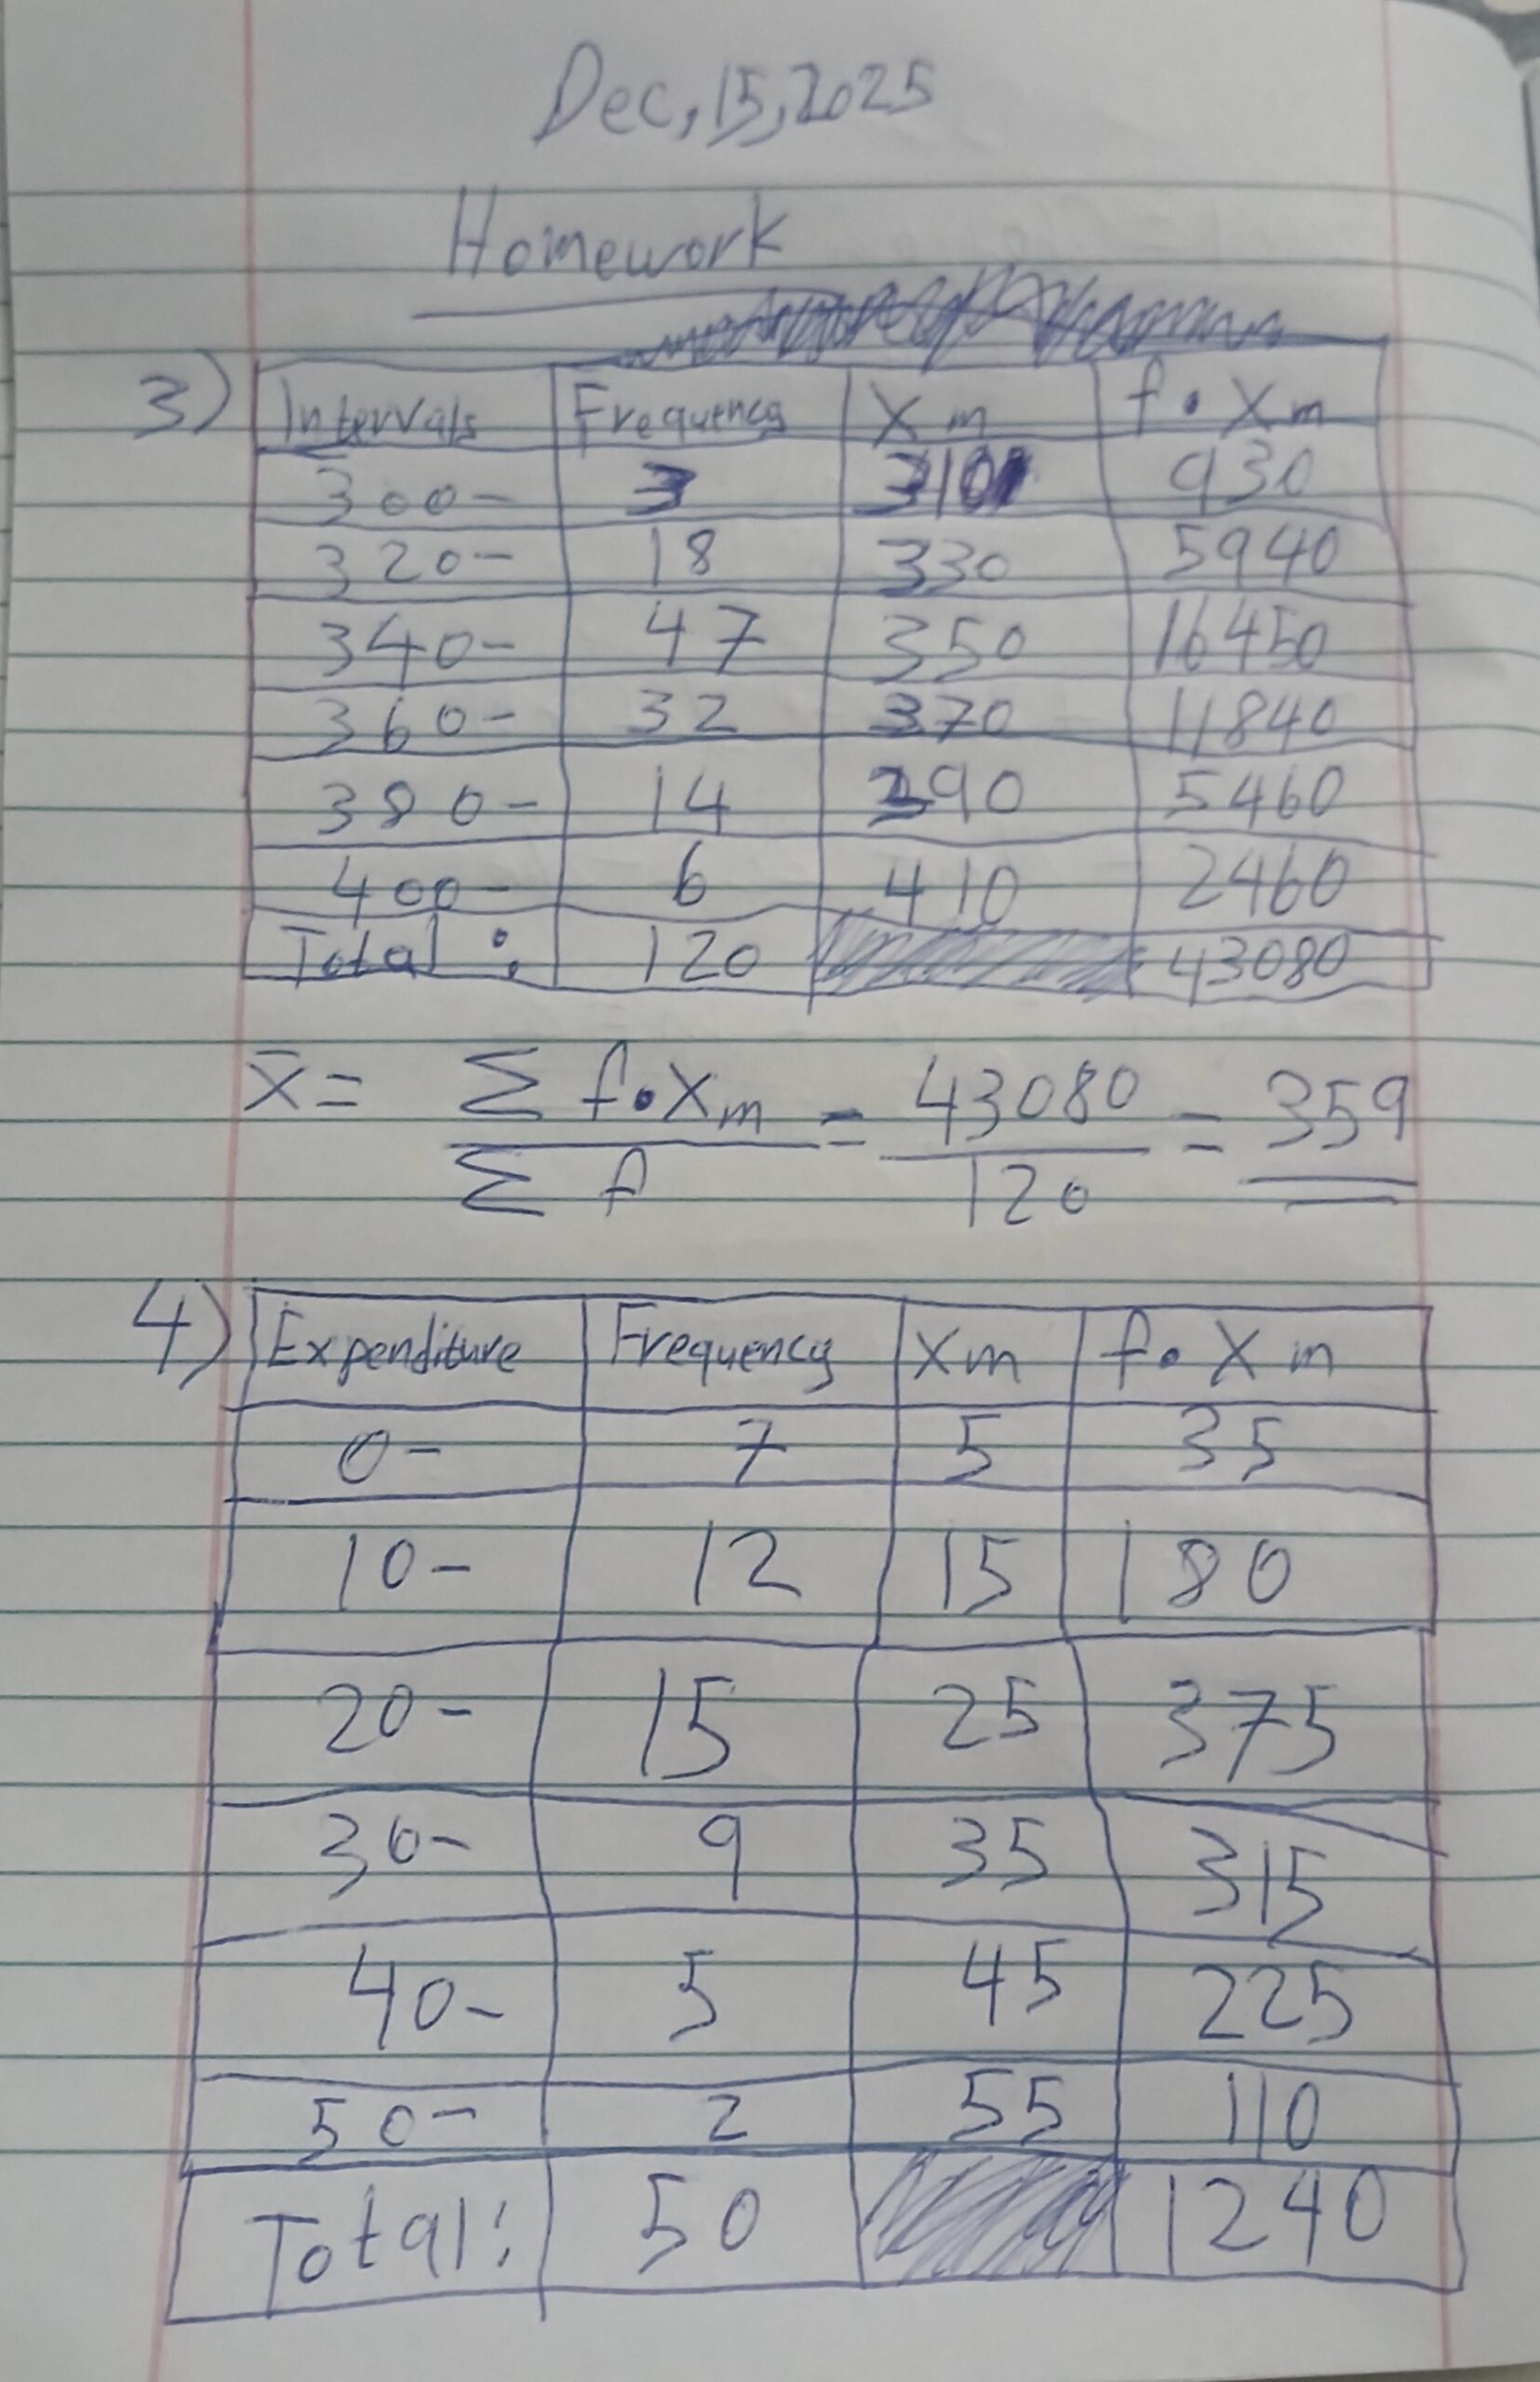 Dec,15,2025
Homework
3) Intervals Frequency Xm f•Xm
300- 3 310 930
320- 18 330 5940
340- 47 350 16450
360- 32 370 11840
380- 14 390 5460
400- 6 410 2460
Total: 120 43080
x̄= Σ f•Xm / Σ f = 43080 / 120 = 359
4) Expenditure Frequency Xm f•Xm
0- 7 5 35
10- 12 15 180
20- 15 25 375
30- 9 35 315
40- 5 45 225
50- 2 55 110
Total: 50 1240